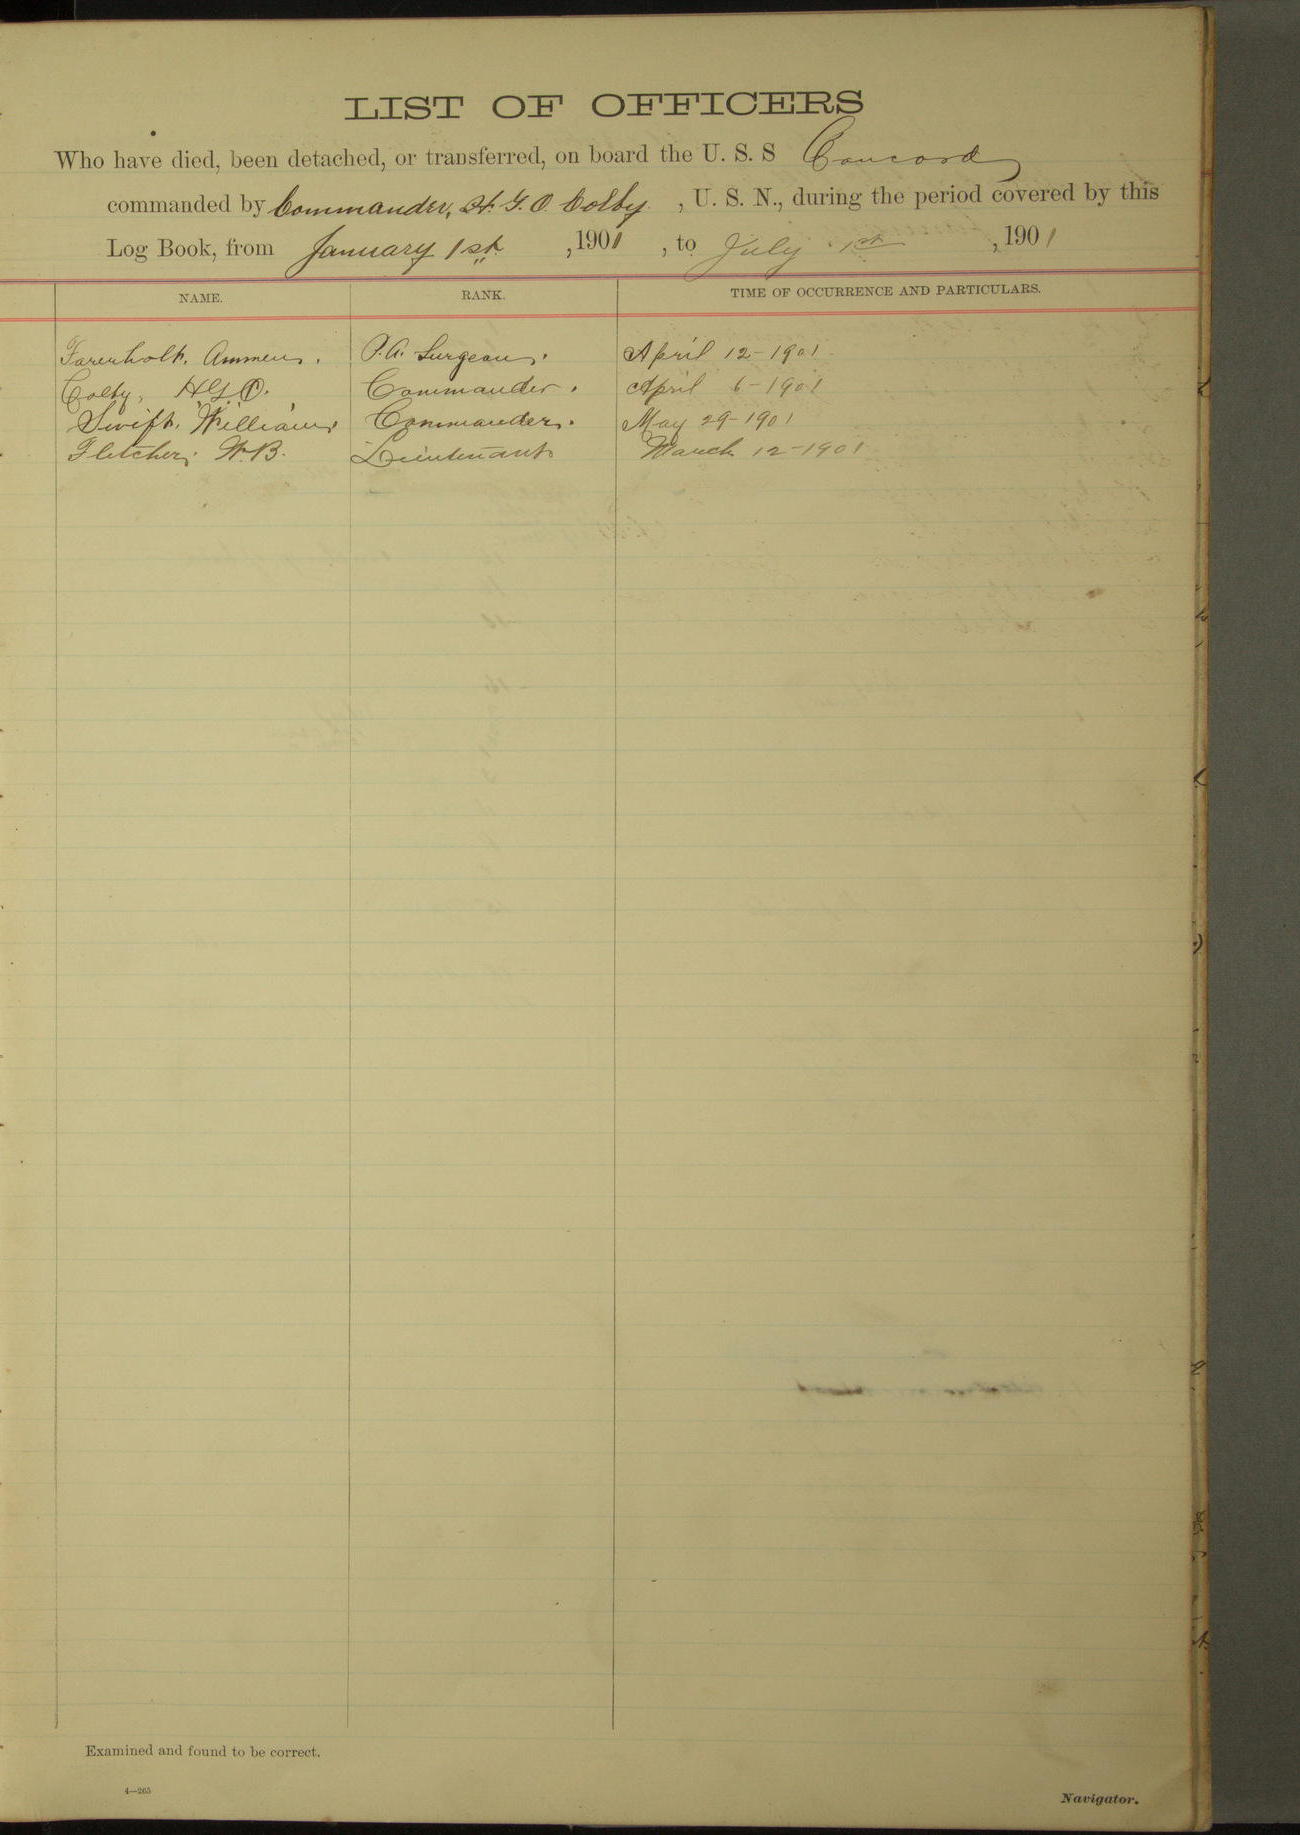 LIST OF OFFICERS
Who have died, been detached, or transferred, on board the U. S. S Concord
commanded by Commander, H. G. O. Colby , U. S. N., during the period covered by this
Log Book, from January 1st , 1901 , to July 1st , 1901
NAME. RANK. TIME OF OCCURRENCE AND PARTICULARS.
Farenholt, Ammen. P. A. Surgeon. April 12-1901
Colby, H.G.O. Commander. April 6-1901
Swift, William, Commander. May 29-1901
Fletcher, W.B. Lieutenant March 12-1901
Examined and found to be correct.
4—265
Navigator.